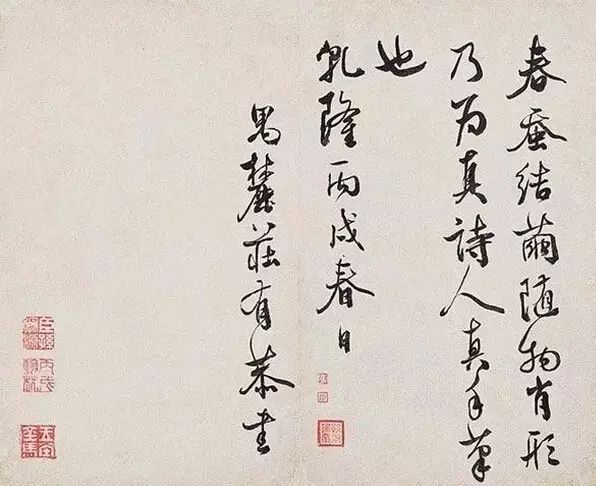 春蚕結繭随物肖形
乃為真詩人真手筆
也
乾隆丙戌春日
禺麓莊有恭書